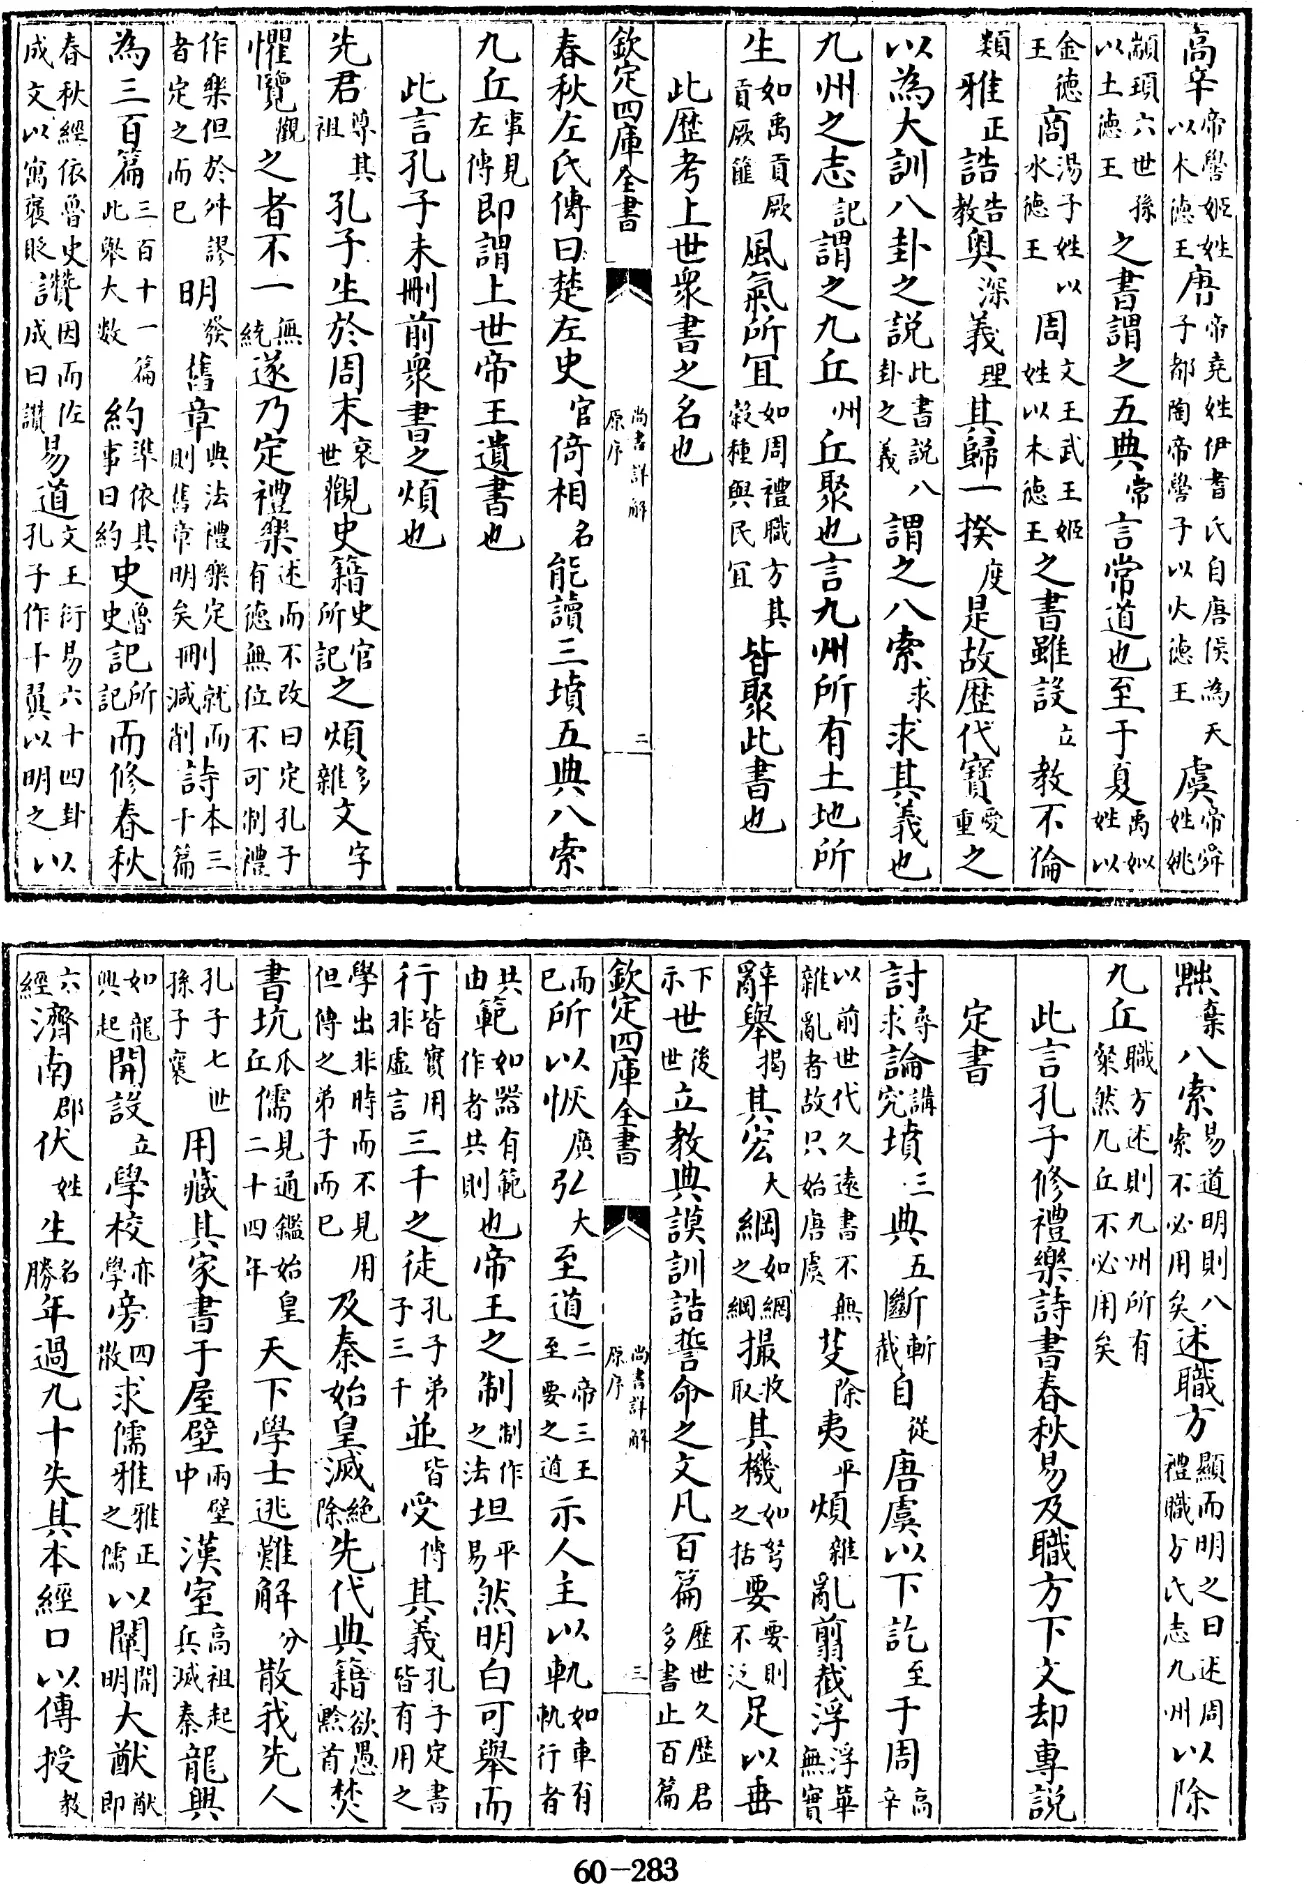 高辛帝嚳姬姓以木德王唐帝堯姓伊耆氏自唐侯為天子都陶帝嚳子以火德王虞帝舜姓姚
顓頊六世孫以土德王之書謂之五典常言常道也至于夏禹姒姓以
金德王商湯子姓以水德王周文王武王姬姓以木德王之書雖設立教不倫
類雅正誥告教奥深義理其歸一揆度是故歴代寳愛重之
以為大訓八卦之説此書説八卦之義謂之八索求求其義也
九州之志記謂之九丘州丘聚也言九州所有土地所
生如禹貢厥貢厥篚風氣所宜如周禮職方其榖種與民宜皆聚此書也
此歴考上世衆書之名也
欽定四庫全書 尚書詳解原序 二
春秋左氏傳曰楚左史官倚相名能讀三墳五典八索
九丘事見左傳即謂上世帝王遺書也
此言孔子未刪前衆書之煩也
先君尊其祖孔子生於周末衰世觀史籍史官所記之煩多雜文字
懼覽觀之者不一無統遂乃定禮樂述而不改曰定孔子有德無位不可制禮
作樂但於舛謬者定之而已明發舊章典法禮樂定則舊章明矣刪就而減削詩本三千篇
為三百篇三百十一篇此舉大數約準依其事曰約史魯史記所記而修春秋
春秋經依魯史成文以寓襃貶讚因而佐成曰讚易道文王衍易六十四卦孔子作十翼以明之以
黜棄八索易道明則八索不必用矣述職方顯而明之曰述周禮職方氏志九州以除
九丘職方述則九州所有粲然九丘不必用矣
此言孔子修禮樂詩書春秋易及職方下文却專説
定書
討尋求論講究墳三典五斷斬截自從唐虞以下訖至于周高辛
以前世代久遠書不無雜亂者故只始唐虞芟除夷平煩雜亂翦截浮浮華無實
辭舉揭其宏大綱如網之綱撮收取其機如弩之括要要則不泛足以垂
下示世後世立教典謨訓誥誓命之文凡百篇歴世久歴君多書止百篇
欽定四庫全書 尚書詳解原序 三
而已所以恢廣弘大至道二帝三王至要之道示人主以軌如車有軌行者
共由範如器有範作者共則也帝王之制制作之法坦平易然明白可舉而
行皆實用非虚言三千之徒孔子弟子三千並皆受傳其義孔子定書皆有用之
學出非時而不見用但傳之弟子而已及秦始皇滅絶除先代典籍欲愚黔首焚
書坑瓜丘儒見通鑑始皇二十四年天下學士逃難解分散我先人
孔子七世孫子襄用藏其家書于屋壁兩壁中漢室高祖起兵滅秦龍興
如龍興起開設立學校學亦旁四散求儒雅雅正之儒以闡開明大猷猷即
六經濟南郡伏姓生名勝年過九十失其本經口以傳授教
60-283